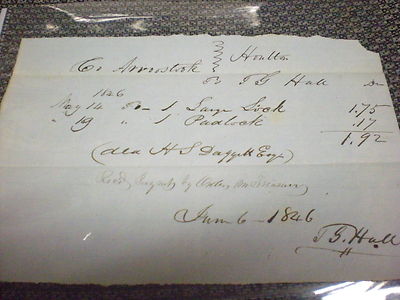 Houlton
Co Aroostook
To T G Hall Dr
1846
May 14 To 1 Large Lock 1.75
" 19 " 1 Padlock .17
1.92
(dld H S Daggett Esq)
Recd by Order on Treasurer
June 6 - 1846
T G. Hall